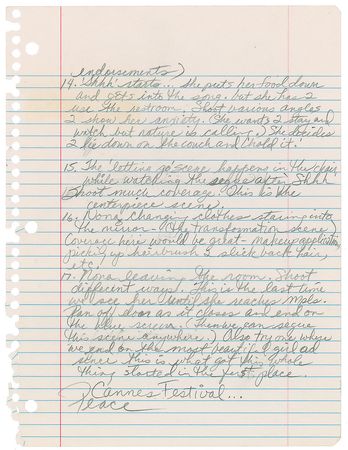 endorsements)
14. 'Shhh' starts... she puts her food down
and gets into the song. but she has 2
use the restroom. Shoot various angles
2 show her anxiety. (She wants 2 stay and
watch but nature is calling.) She decides
2 lie down on the couch and 'hold it.'
15. The 'letting go' scene happens in the chair
while watching the scenes after Shhh
Shoot much coverage. This is the
centerpiece scene.
16. Nona changing clothes staring into
the mirror - (The transformation scene)
Coverage here would be great - makeup application,
picking up hairbrush 2 slick back hair,
etc.
17. Nona leaving the room. Shoot
different ways. This is the last time
we see her until she reaches Mpls.
Pan off door as it closes and end on
the blue screen. (Then we can segue
this scene anywhere.) Also try one where
we end on the most beautiful girl ad
since this is what got this whole
thing started in the first place.
Cannes Festival...
Peace